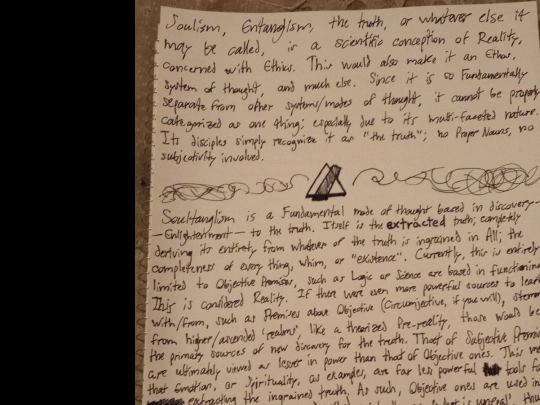 Soulism, Entanglism, the truth, or whatever else it
may be called, is a scientific conception of Reality,
concerned with Ethics. This would also make it an Ethos,
system of thought, and much else. Since it is so Fundamentally
separate from other systems/modes of thought, it cannot be properly
categorized as one thing; especially due to its multi-faceted nature.
Its disciples simply recognize it as "the truth"; no Proper Nouns, no
subjectivity involved.
Soultanglism is a Fundamental mode of thought based in discovery-
-Enlightenment- to the truth. Itself is the extracted truth; completely
deriving its entirety from whatever of the truth is ingrained in All; the
completeness of every thing, whim, or "existence". Currently, this is entirely
limited to Objective Premises, such as Logic or Science are based in functioning
This is considered Reality. If there were even more powerful sources to learn
with/from, such as Premises above Objective (Circumjective, if you will),
from higher/ascended 'realms', like a theorized Pre-reality, those would be
the primary sources of new discovery for the truth. That of Subjective Premises
are ultimately viewed as lesser in power than that of Objective ones. This
that Emotion, or Spirituality, as examples, are far less powerful tools
extracting the ingrained truth. As such, Objective ones are used in